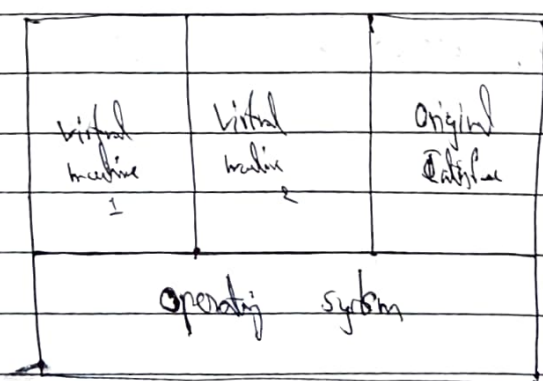 Virtual
machine
1
Virtual
machine
2
Original
operating system